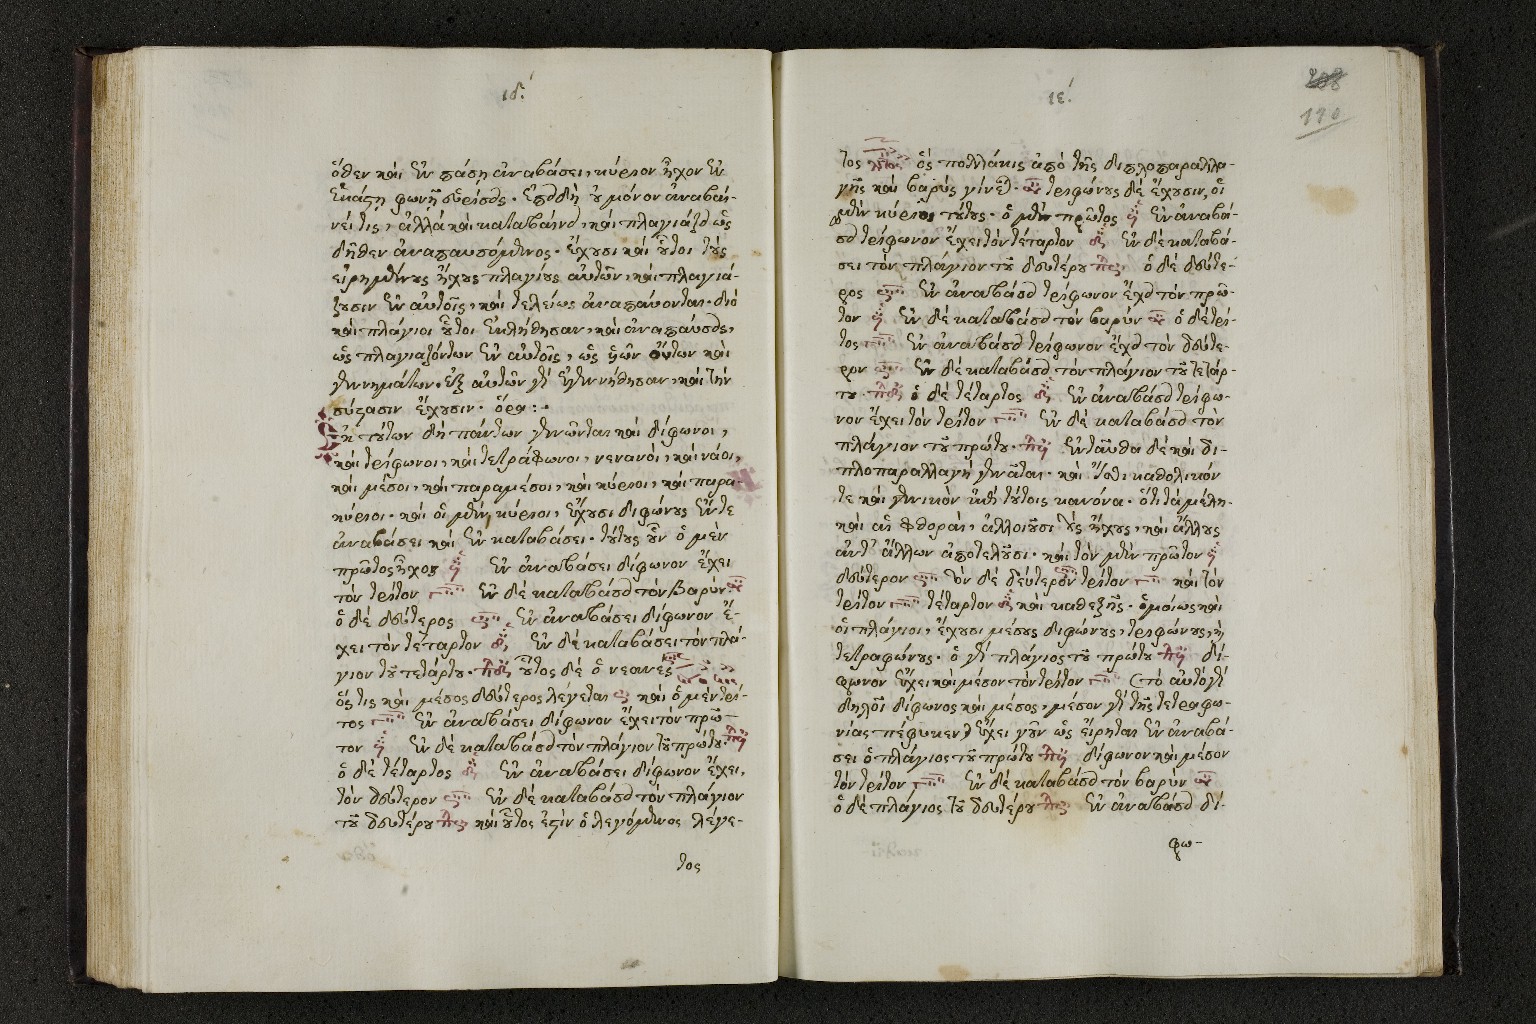 ιδ΄.
ὅθεν καὶ ἐν πάσῃ ἀναβάσει, κύριον ἦχον ἐν
ἑκάστῃ φωνῇ εὑρίσεις. ἐπειδὴ οὐ μόνον ἀναβαί-
νει τις, ἀλλὰ καὶ καταβαίνει, καὶ πλαγιάζει ὡς
δῆθεν ἀναπαυσόμενος. ἔχουσι καὶ οὗτοι τοὺς
εἰρημένους ἤχους πλαγίους αὐτῶν, καὶ πλαγιά-
ζουσιν ἐν αὐτοῖς, καὶ τελείως ἀναπαύονται. διὸ
καὶ πλάγιοι οὗτοι ἐκλήθησαν, καὶ ἀναπαύσεις,
ὡς πλαγιαζόντων ἐν αὐτοῖς, ὡς υἱῶν ὄντων καὶ
γεννημάτων. ἐξ αὐτῶν γὰρ ἐγεννήθησαν, καὶ τὴν
σύστασιν ἔχουσιν. ὅρα:
Ἐκ τούτων δὴ πάντων γεννῶνται καὶ δίφωνοι,
καὶ τρίφωνοι, καὶ τετράφωνοι, νενανοὶ, καὶ νάοι,
καὶ μέσοι, καὶ παραμέσοι, καὶ κύριοι, καὶ παρα-
κύριοι. καὶ οἱ μὲν κύριοι, ἔχουσι διφώνους ἔν τε
ἀναβάσει καὶ ἐν καταβάσει. τούτους οὖν ὁ μὲν
πρῶτος ἦχος ἐν ἀναβάσει δίφωνον ἔχει
τὸν τρίτον ἐν δὲ καταβάσει τὸν βαρύν.
ὁ δὲ δεύτερος ἐν ἀναβάσει δίφωνον ἔ-
χει τὸν τέταρτον ἐν δὲ καταβάσει τὸν πλά-
γιον τοῦ τετάρτου. οὗτος δὲ ὁ νεανες
ὅστις καὶ μέσος δεύτερος λέγεται καὶ ὁ μὲν τρί-
τος ἐν ἀναβάσει δίφωνον ἔχει τὸν πρῶ-
τον ἐν δὲ καταβάσει τὸν πλάγιον τοῦ πρώτου.
ὁ δὲ τέταρτος ἐν ἀναβάσει δίφωνον ἔχει,
τὸν δεύτερον ἐν δὲ καταβάσει τὸν πλάγιον
τοῦ δευτέρου καὶ οὗτος ἐστὶν ὁ λεγόμενος λέγε-
τος
ιε΄.
190
τος λέγετος ὃς πολλάκις ἀπὸ τῆς διπλοπαραλλα-
γῆς καὶ βαρὺς γίνεται. τριφώνους δὲ ἔχουσιν, οἱ
μὲν κύριοι τούτους. ὁ μὲν πρῶτος ἐν ἀναβά-
σει τρίφωνον ἔχει τὸν τέταρτον ἐν δὲ καταβά-
σει τὸν πλάγιον τοῦ δευτέρου ὁ δὲ δεύτε-
ρος ἐν ἀναβάσει τρίφωνον ἔχει τὸν πρῶ-
τον ἐν δὲ καταβάσει τὸν βαρύν ὁ δὲ τρί-
τος ἐν ἀναβάσει τρίφωνον ἔχει τὸν δεύτε-
ρον ἐν δὲ καταβάσει τὸν πλάγιον τοῦ τετάρ-
του. ὁ δὲ τέταρτος ἐν ἀναβάσει τρίφω-
νον ἔχει τὸν τρίτον ἐν δὲ καταβάσει τὸν
πλάγιον τοῦ πρώτου. ἐνταῦθα δὲ καὶ δι-
πλοπαραλλαγὴ γεννᾶται. καὶ ἴσθι καθολικόν
τε καὶ γενικὸν ἐπὶ τούτοις κανόνα. ὅτι τὰ μέλη
καὶ αἱ φθοραὶ, ἀλλοιοῦσι τοὺς ἤχους, καὶ ἄλλους
ἀντ' ἄλλων ἀποτελοῦσι. καὶ τὸν μὲν πρῶτον
δεύτερον τὸν δὲ δεύτερον τρίτον καὶ τὸν
τρίτον τέταρτον καὶ καθεξῆς. ὁμοίως καὶ
οἱ πλάγιοι, ἔχουσι μέσους διφώνους, τριφώνους, ἢ
τετραφώνους. ὁ γὰρ πλάγιος τοῦ πρώτου δί-
φωνον ἔχει καὶ μέσον τὸν τρίτον (τὸ αὐτὸ γὰρ
δηλοῖ δίφωνος καὶ μέσος, μέσον γὰρ τῆς τετραφω-
νίας πέφυκεν) ἔχει γοῦν ὡς εἴρηται ἐν ἀναβά-
σει ὁ πλάγιος τοῦ πρώτου δίφωνον καὶ μέσον
τὸν τρίτον ἐν δὲ καταβάσει τὸν βαρύν
ὁ δὲ πλάγιος τοῦ δευτέρου ἐν ἀναβάσει δί-
φω-